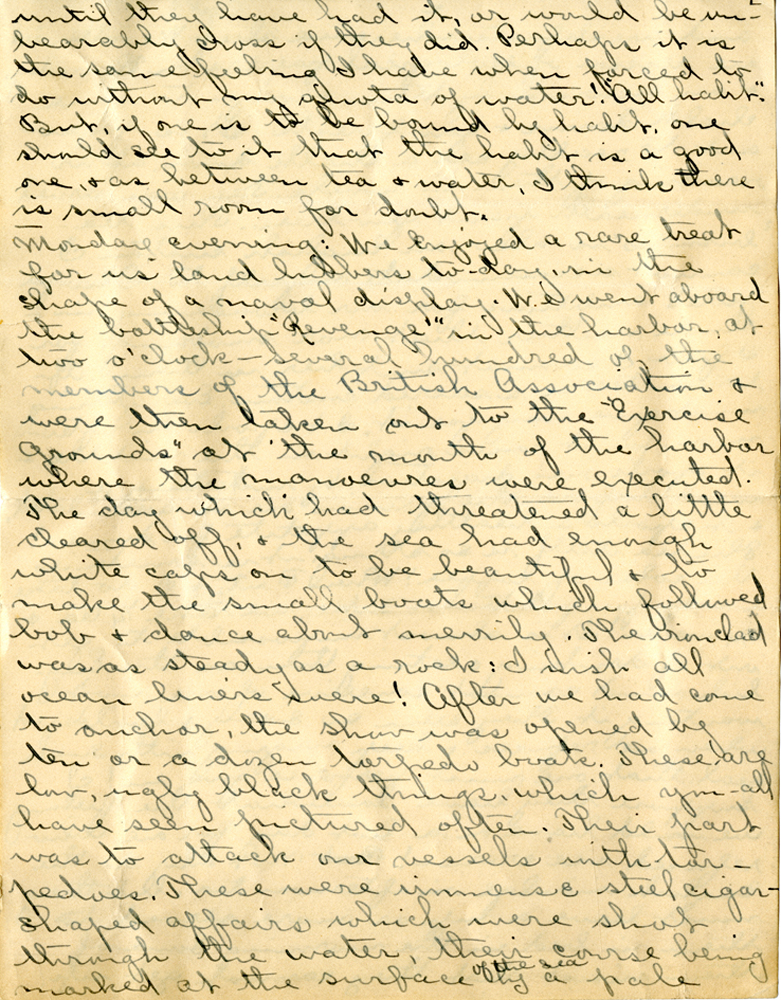 until they have had it, or would be un-
bearably cross if they did. Perhaps it is
the same feeling I have when forced to
do without my quota of water! "All habit."
But, if one is to be bound by habit, one
should see to it that the habit is a good
one, & as between tea & water, I think there
is small room for doubt.
Monday evening: We enjoyed a rare treat
for us land lubbers to-day, in the
shape of a naval display. We went aboard
the battleship "Revenge" in the harbor, at
two o'clock – several hundred of the
members of the British Association &
were then taken out to the "Exercise
Grounds" at the mouth of the harbor
where the manoeuvres were executed.
The day which had threatened a little
cleared off, & the sea had enough
white caps on to be beautiful & to
make the small boats which followed
bob & dance about merrily. The ironclad
was as steady as a rock: I wish all
ocean liners were! After we had come
to anchor, the show was opened by
ten or a dozen torpedo boats. These are
low, ugly black things, which you-all
have seen pictured often. Their part
was to attack our vessels with tor-
pedoes. These were immense steel cigar-
shaped affairs which were shot
through the water, their course being
marked at the surface of the sea by a pale